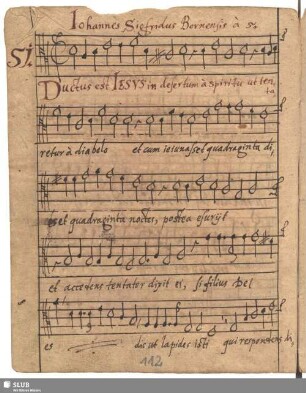 Johannes Sigfridus Bornensis à 5.
51.
Ductus est IESVS in desertum à Spiritu ut ten,
ta
retur à diabolo et cum ieiunasset quadraginta di,
es et quadraginta noctes, postea esurijt
et accedens tentator dixit ei, si filius Dei
es dic ut lapides isti qui respondens di,
112
SLUB